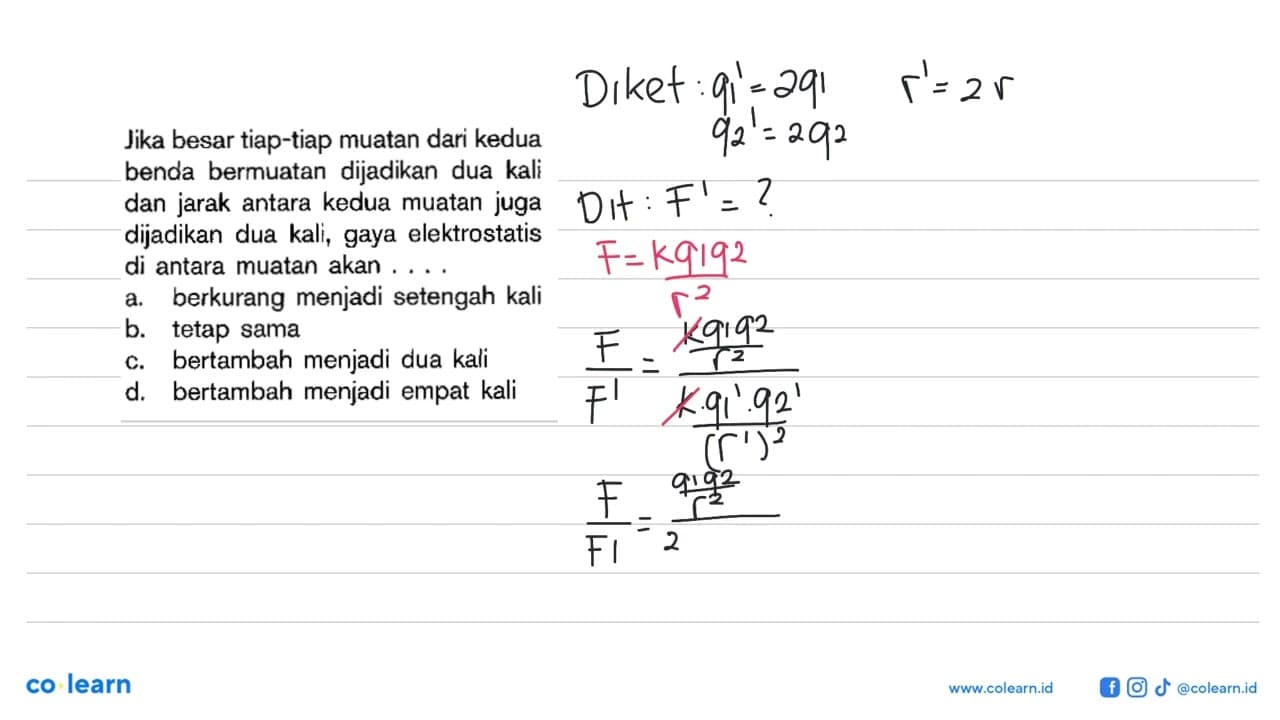 Jika besar tiap-tiap muatan dari kedua
benda bermuatan dijadikan dua kali
dan jarak antara kedua muatan juga
dijadikan dua kali, gaya elektrostatis
di antara muatan akan . . . .
a. berkurang menjadi setengah kali
b. tetap sama
c. bertambah menjadi dua kali
d. bertambah menjadi empat kali
Diket : q1' = 2q1 r' = 2r
q2' = 2q2
Dit : F' = ?
F = kq1q2
r²
F = kq1q2
r²
F' k.q1'.q2'
(r')²
F = q1q2
r²
F' 2
co learn
www.colearn.id @colearn.id